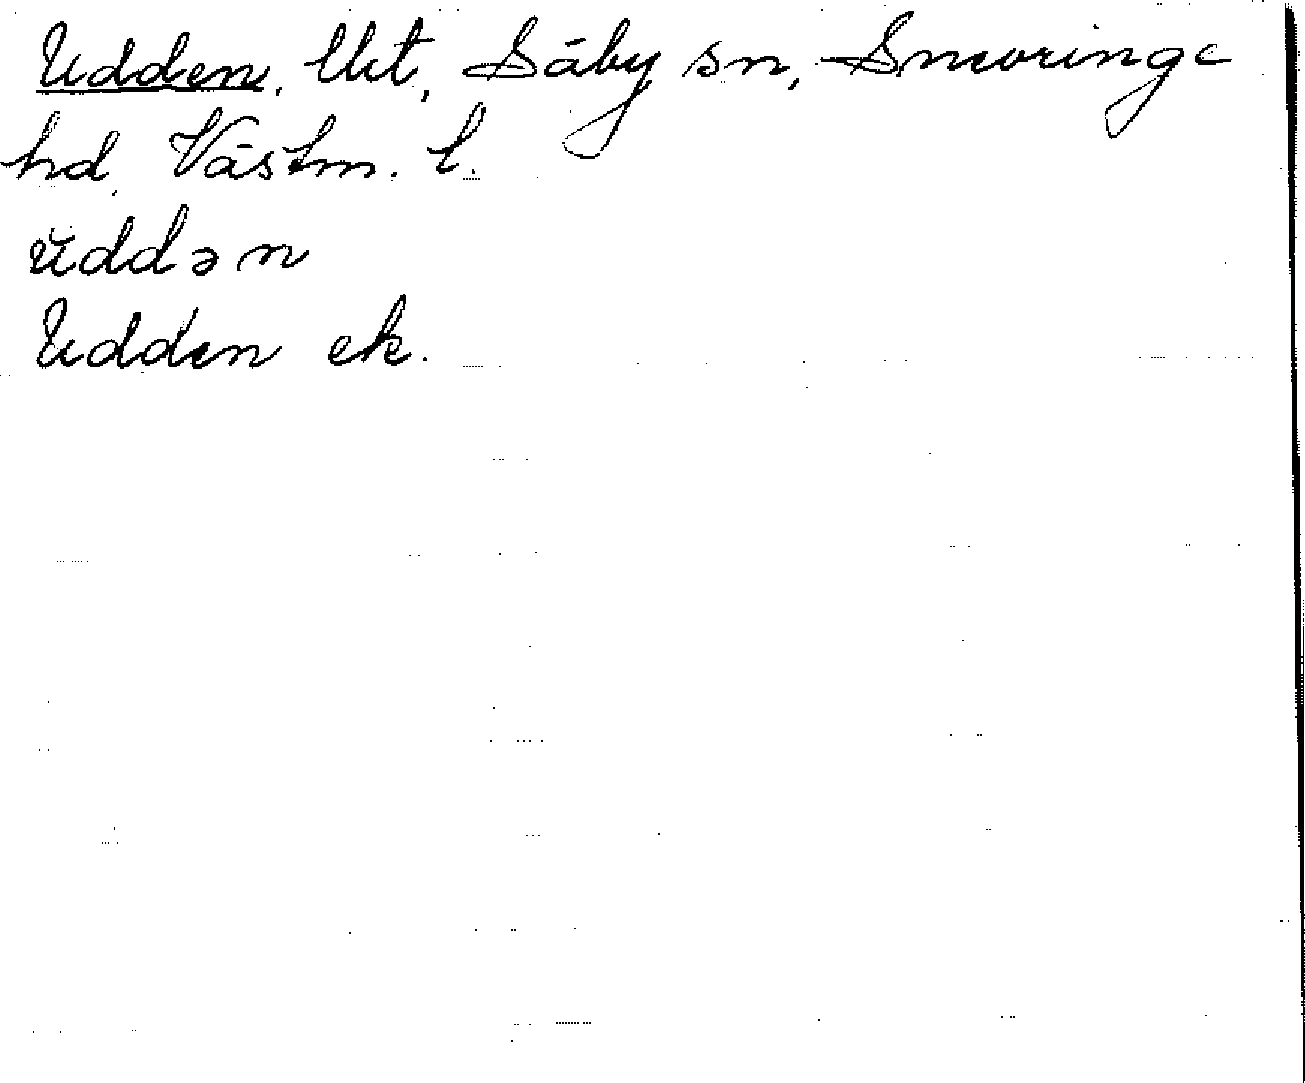 Udden, lht, Säby sn, Snevringe
hd, Västm. l.
ŭddən
Udden ek.